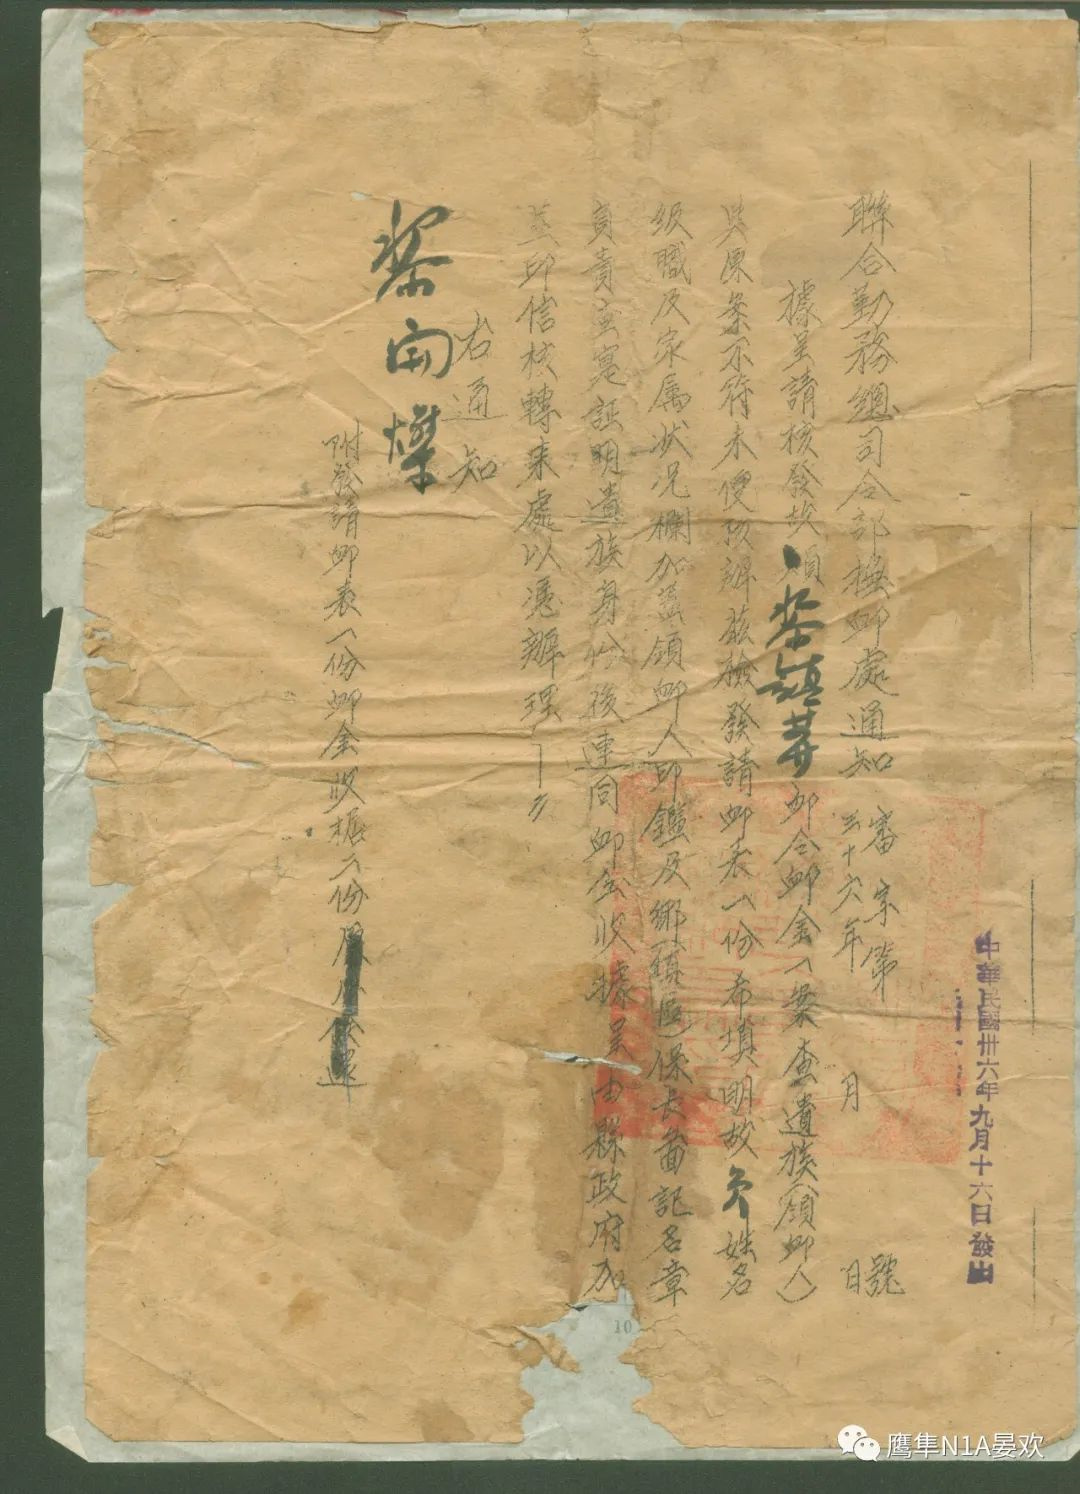 中華民國卅六年九月十六日發出
聯合勤務總司令部撫卹處通知 審字第 號
三十六年 月 日
據呈請核發故 員 卹令卹金一案查遺族(領卹人)
與原案不符未便核辦茲檢發請卹表一份希填明故 姓名
級職及家属状况欄加蓋領卹人印鑑及鄉鎮(區)保長圖記名章
負責查寔証明遺族身份後連同卹金收據呈由縣政府加
蓋印信核轉来處以憑辦理
右通知
附發請卹表一份卹金收据一份
10
鹰隼N1A晏欢